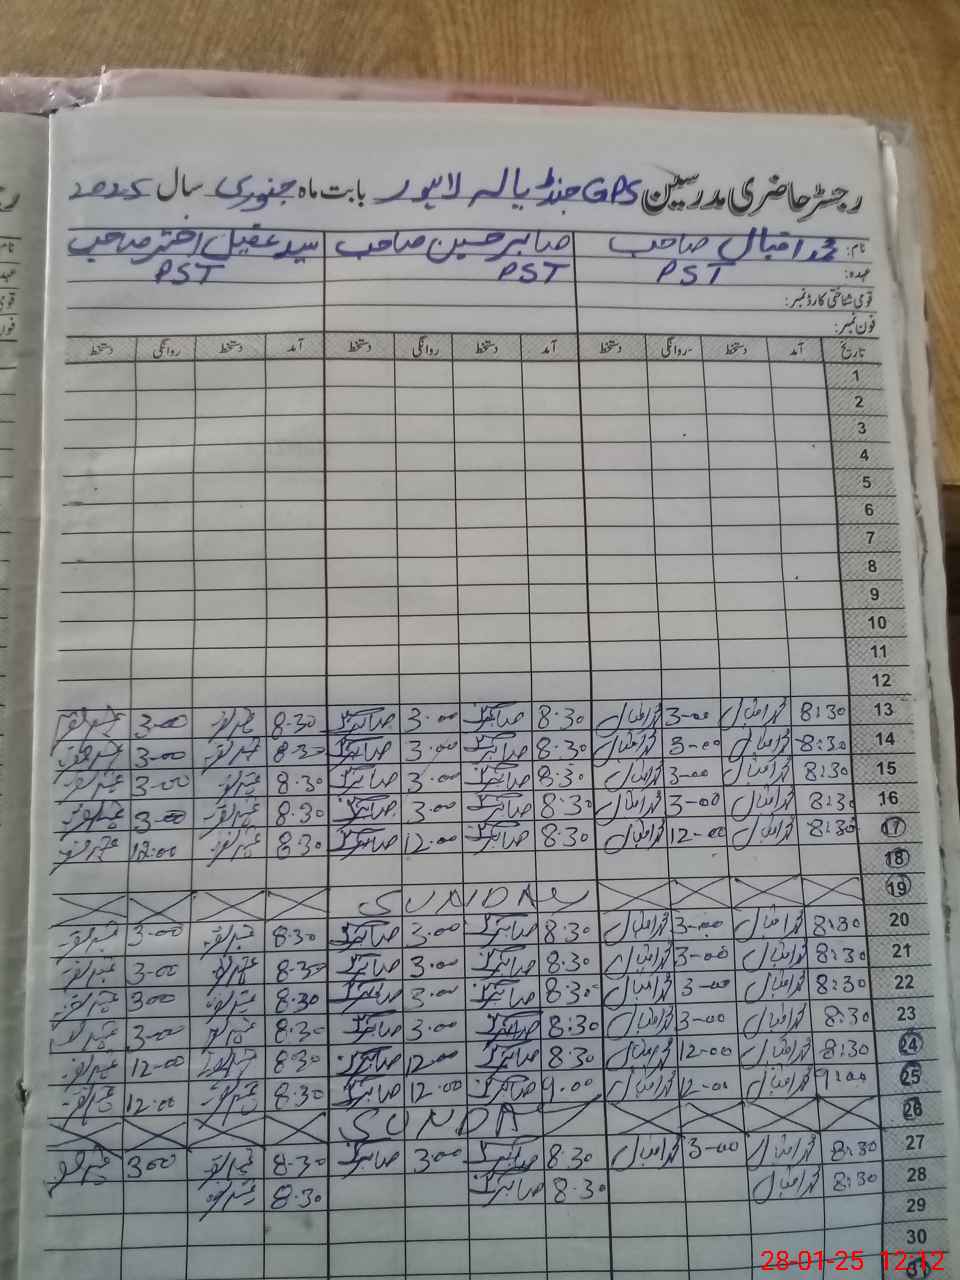 رجسٹر حاضری مدرسین GPS جنڈیالہ لاہور بابت ماہ جنوری سال 2025
نام: محمد اقبال صاحب صابر حسین صاحب سید عقیل اختر صاحب
عہدہ: PST PST PST
قومی شناختی کارڈ نمبر:
فون نمبر:
تاریخ آمد دستخط روانگی دستخط آمد دستخط روانگی دستخط آمد دستخط روانگی دستخط
1
2
3
4
5
6
7
8
9
10
11
12
13 8:30 محمد اقبال 3-00 محمد اقبال 8.30 صابر 3.00 صابر 8.30 3-00
14 8:30 محمد اقبال 3-00 محمد اقبال 8.30 صابر 3.00 صابر 8.30 3-00
15 8:30 محمد اقبال 3-00 محمد اقبال 8:30 صابر 3.00 صابر 8.30 3-00
16 8:30 محمد اقبال 3-00 محمد اقبال 8:30 صابر 3.00 صابر 8.30 3-00
17 8:30 محمد اقبال 12-00 محمد اقبال 8.30 صابر 12.00 صابر 8.30 12.00
18
19 SUNDAY
20 8:30 محمد اقبال 3-00 محمد اقبال 8.30 صابر 3.00 صابر 8.30 3-00
21 8:30 محمد اقبال 3-00 محمد اقبال 8.30 صابر 3.00 صابر 8-30 3-00
22 8:30 محمد اقبال 3-00 محمد اقبال 8:30 صابر 3.00 صابر 8.30 300
23 8:30 محمد اقبال 3-00 محمد اقبال 8:30 صابر 3.00 صابر 8.30 3-00
24 8:30 محمد اقبال 12-00 محمد اقبال 8.30 صابر 12.00 صابر 8.30 12-00
25 9:00 محمد اقبال 12-00 محمد اقبال 9.00 صابر 12.00 صابر 8.30 12.00
26 SUNDAY
27 8:30 محمد اقبال 3-00 محمد اقبال 8.30 صابر 300 صابر 8.30 300
28 8:30 محمد اقبال 8.30 صابر 8.30
29
30
31
28-01-25 12:12